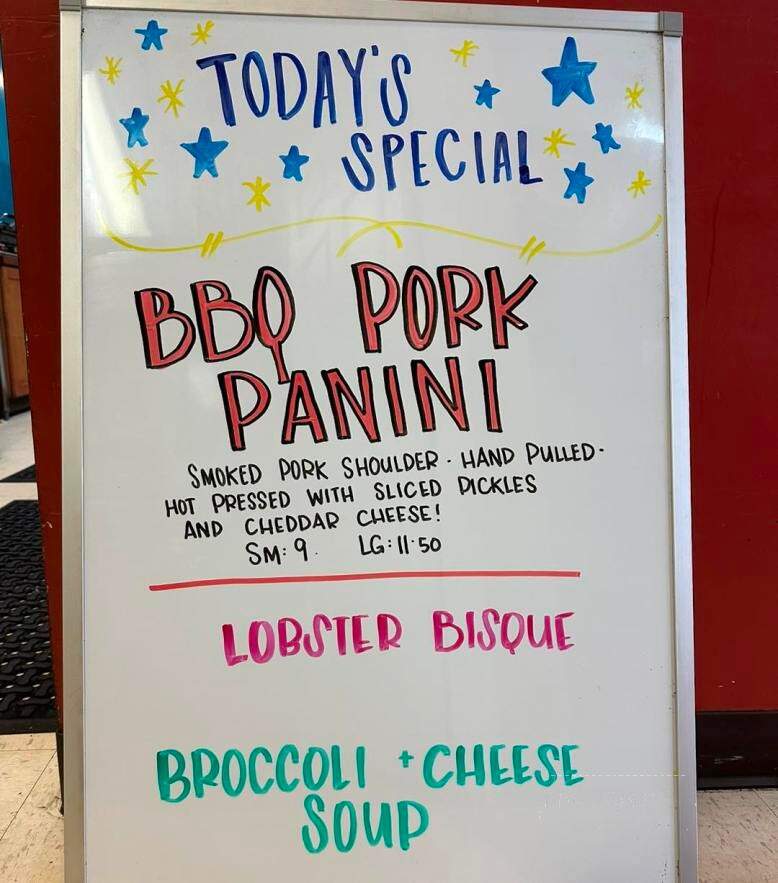 TODAY'S
SPECIAL
BBQ PORK
PANINI
SMOKED PORK SHOULDER · HAND PULLED ·
HOT PRESSED WITH SLICED PICKLES
AND CHEDDAR CHEESE!
SM: 9. LG: 11·50
LOBSTER BISQUE
BROCCOLI + CHEESE
SOUP